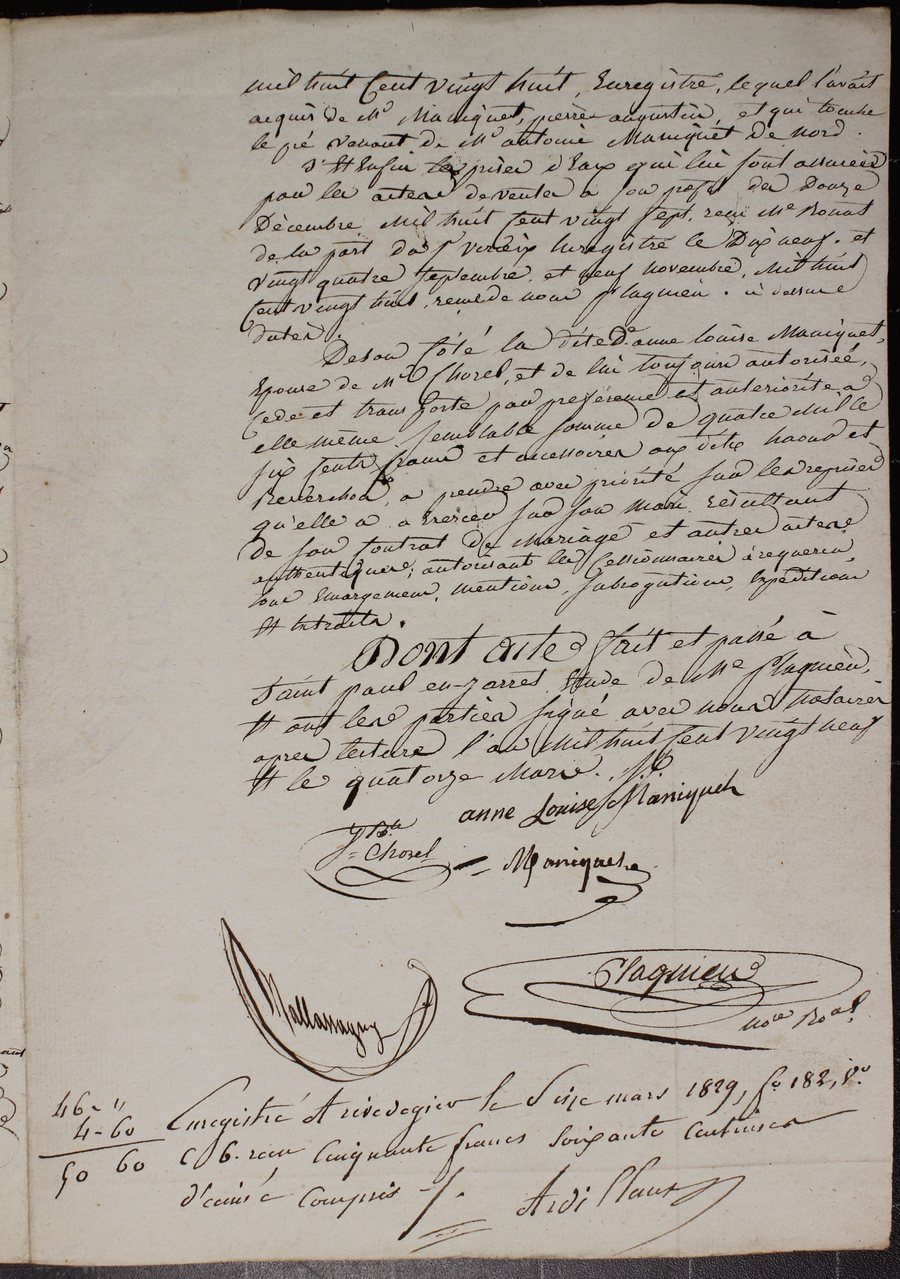 mil huit Cent vingt huit, Enregistré, lequel l'avait
acquis de Mr Maniquet, pierre augustin, et qui touche
le pré venant de Mr antoine Maniquet De nord.
Et Enfin les prises d'Eaux qui lui sont assurées
par les actes de ventes à son profit des Douze
Décembre Mil huit Cent vingt Sept, reçu Me Bonas
de la part du Sr Enregistré le Dix neuf, et
vingt quatre Septembre, et neuf novembre, Mil huit
Cent vingt huit, reçus de nous Plagnieu, ci dessus
datés.
De son Côté la dite De anne Louise Maniquet,
Epouse de Mr Chorel, et de lui toujours autorisée,
Cede et transporte par préférence et anteriorité à
elle même semblable somme de quatre Mille
six Cents francs et accessoires aux dits et
à prendre avec priorité sur les reprises
qu'elle a à Exercer sur son mari résultant
de son Contrat de Mariage et autres actes
authentiques; autorisant les Cessionnaires à requerir
tous Emargemens, mentions, subrogations, Expéditions
Et Extraits.
Dont acte fait et passé à
Saint paul en-jarret Etude de Me Plagnieu,
Et ont les parties signé avec nous Notaires
apres lecture l'an Mil huit Cent vingt neuf
Et le quatorze Mars.
anne Louise Maniquet
Chorel
Maniquet
Plagnieu
nore Roal
46 - "
4 - 60
50 60
Enregistré A rivedegier le Seize mars 1829, fo 182, vo
C 6. reçu Cinquante francs Soixante Centimes
d'ecime Compris
Ardillaux